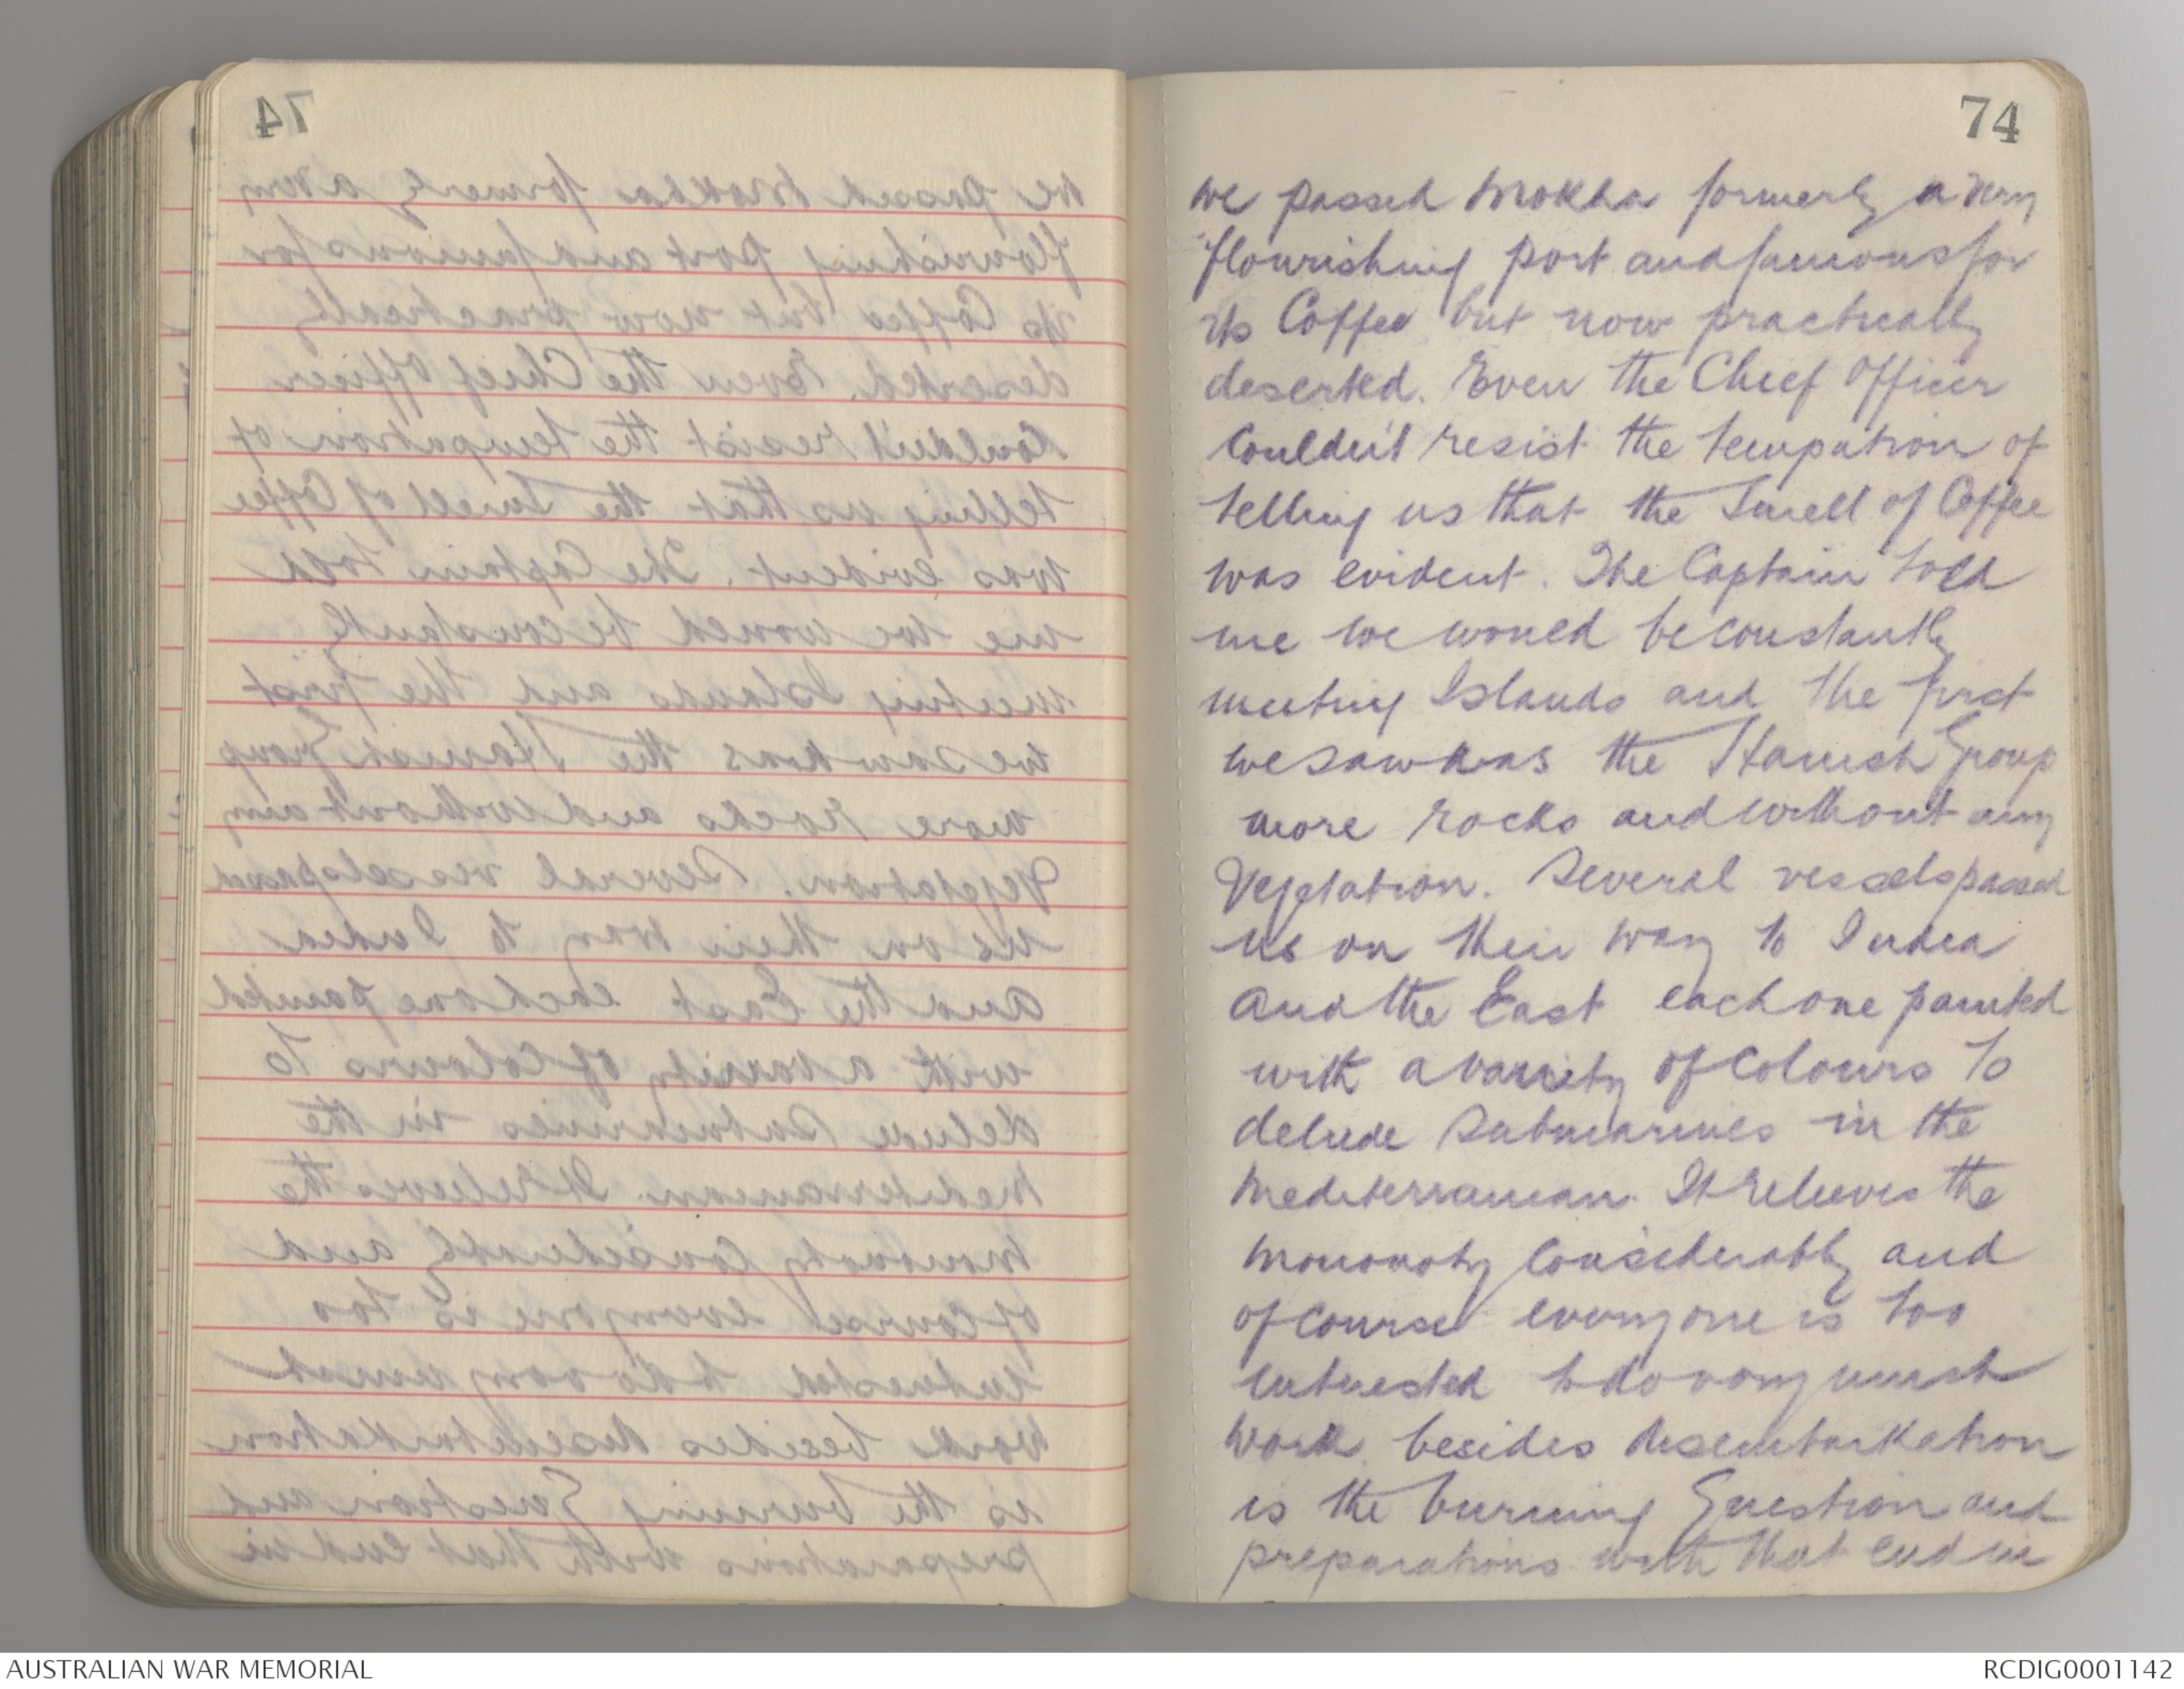 74
we passed Mokha formerly a very
flourishing port and famous for
its Coffee but now practically
deserted. Even the Chief Officer
Couldn't resist the tempation of
telling us that the Smell of Coffee
was evident. The Captain told
me we would be constantly
meeting Islands and the first
we saw was the Hanish Group
more rocks and without any
Vegetation. Several vessels passed
us on their way to India
and the East each one painted
with a variety of Colours to
delude Submarines in the
Mediterranean. It relieves the
Monotony Considerably and
of course everyone is too
interested to do very much
work. besides disembarkation
is the burning Question and
preparations with that end in
AUSTRALIAN WAR MEMORIAL
RCDIG0001142